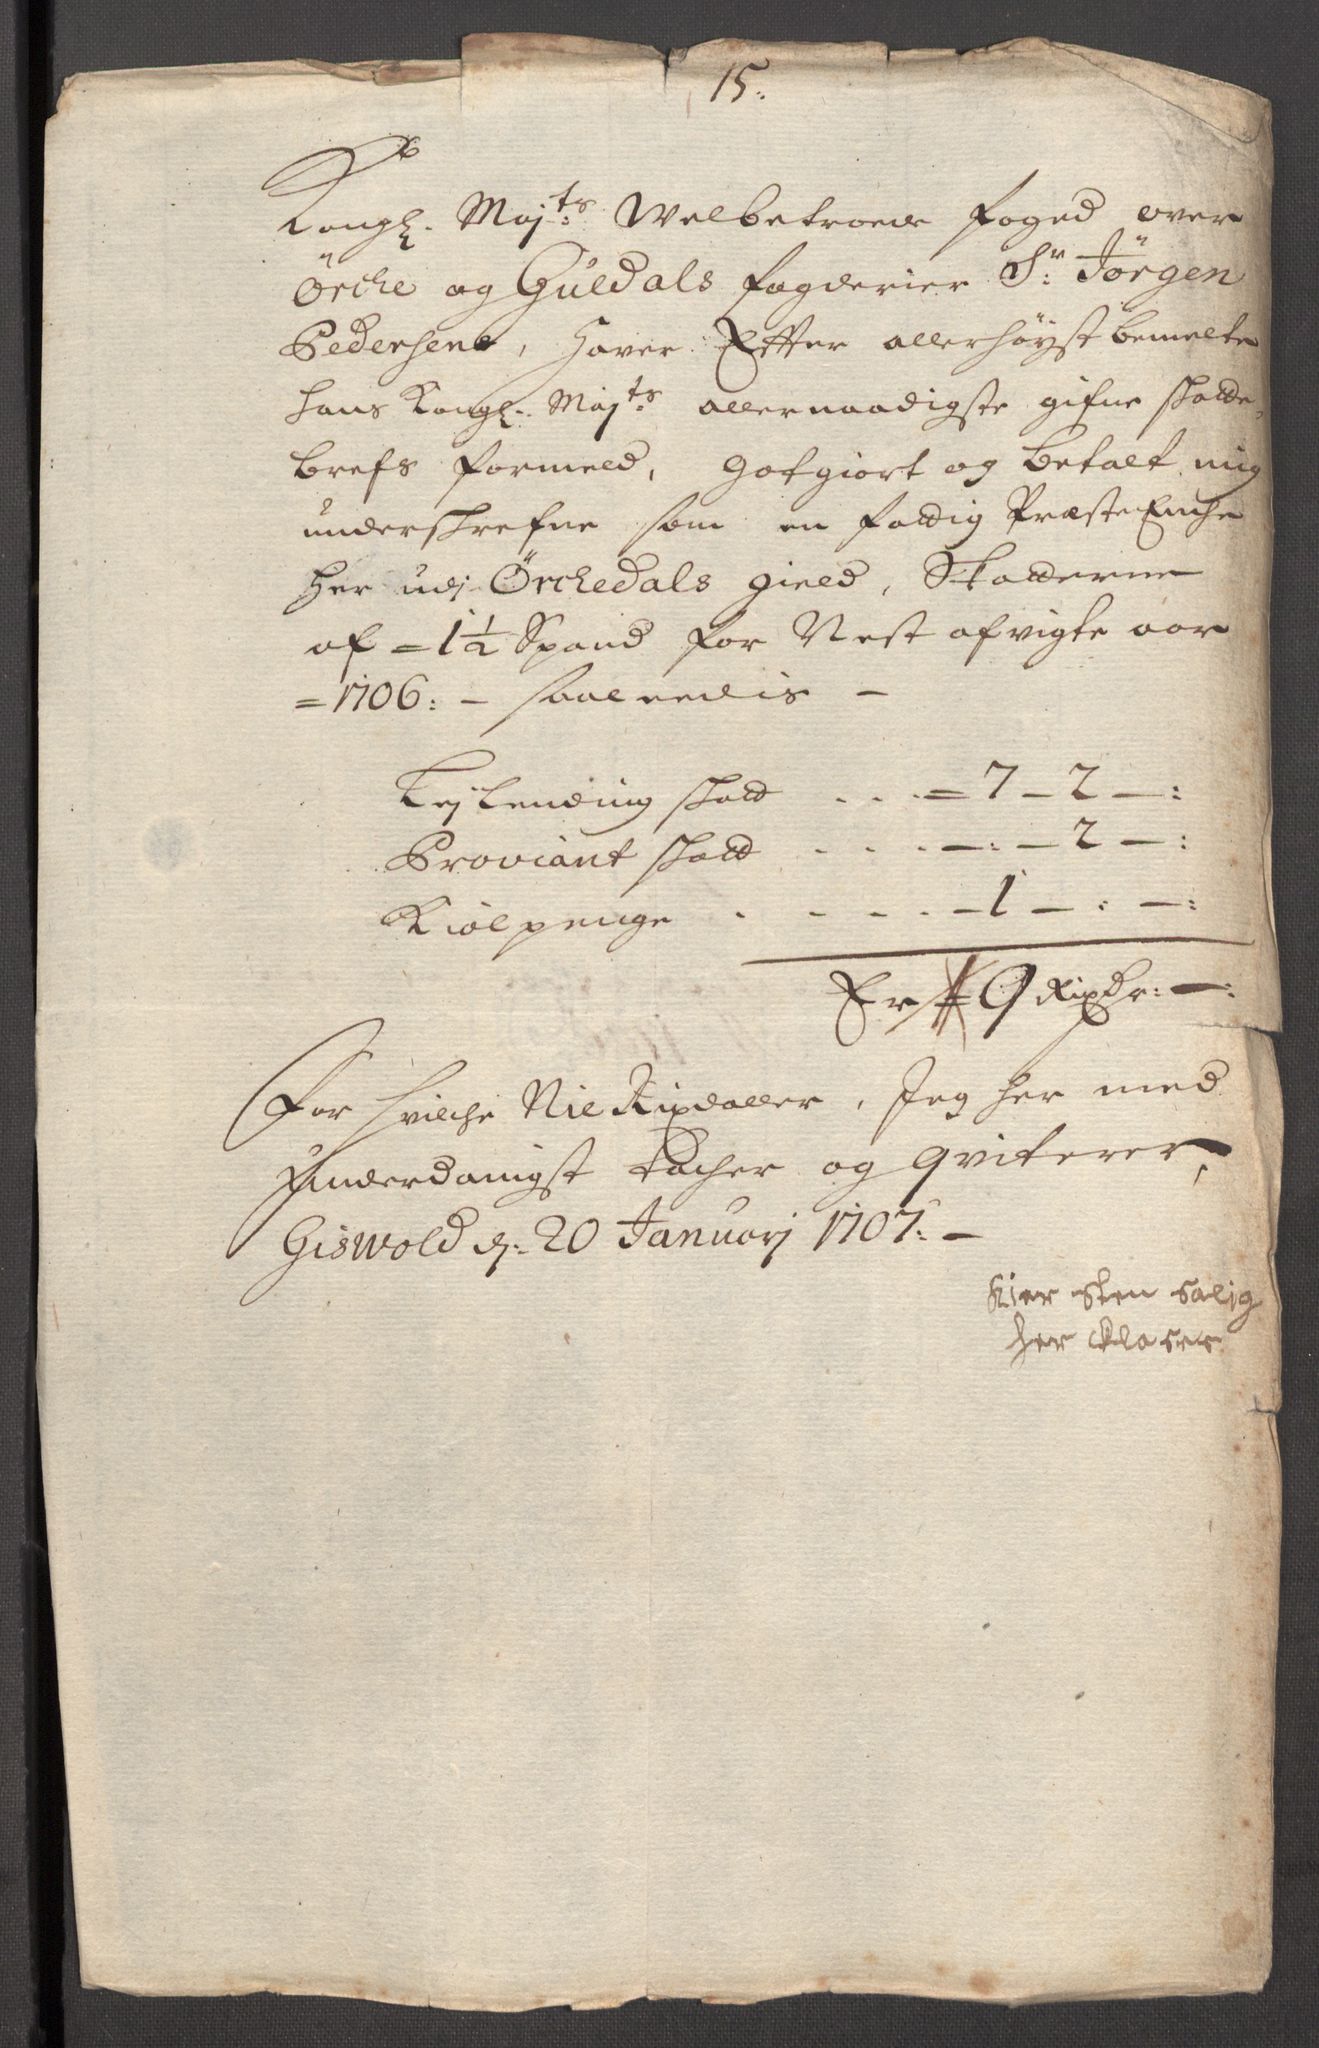 15.
Kongl. Maj:ts Welbetroede foged over
Örche og Guldals fogderier Sr: Jörgen
Pedersene, haver Effter allerhöyst bemelte
hans Kongl. Maj:ts allernaadigste gifne skatte,
brefs formeld, Gotgiort og betalt mig
underschrefne som en fattig Præste Enche
her udj Örchedals gield, Skatterne
af = 1½ Spand for Nest afvigte aar
= 1706: - saaleedis -
Lejlending skatt . . . = 7 - 2 - :
Proviant skatt . . . . - : - 2 - :
Kiölpenge . . . . . - 1 - : - :
Er # 9 Rixdr: - :
For hvilche Nie Rixdaller, Jeg her med
Underdanigst tacher og qviterer,
Giswold d: 20 Januarj 1707: -
Kiersten Salig
her Clases